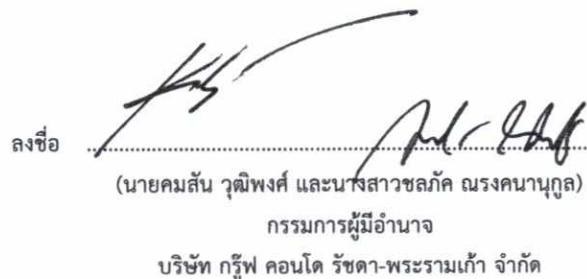 ลงชื่อ ................................................
(นายคมสัน วุฒิพงศ์ และนางสาวชลภัค ณรงคนานุกูล)
กรรมการผู้มีอำนาจ
บริษัท กรู๊ฟ คอนโด รัชดา-พระรามเก้า จำกัด